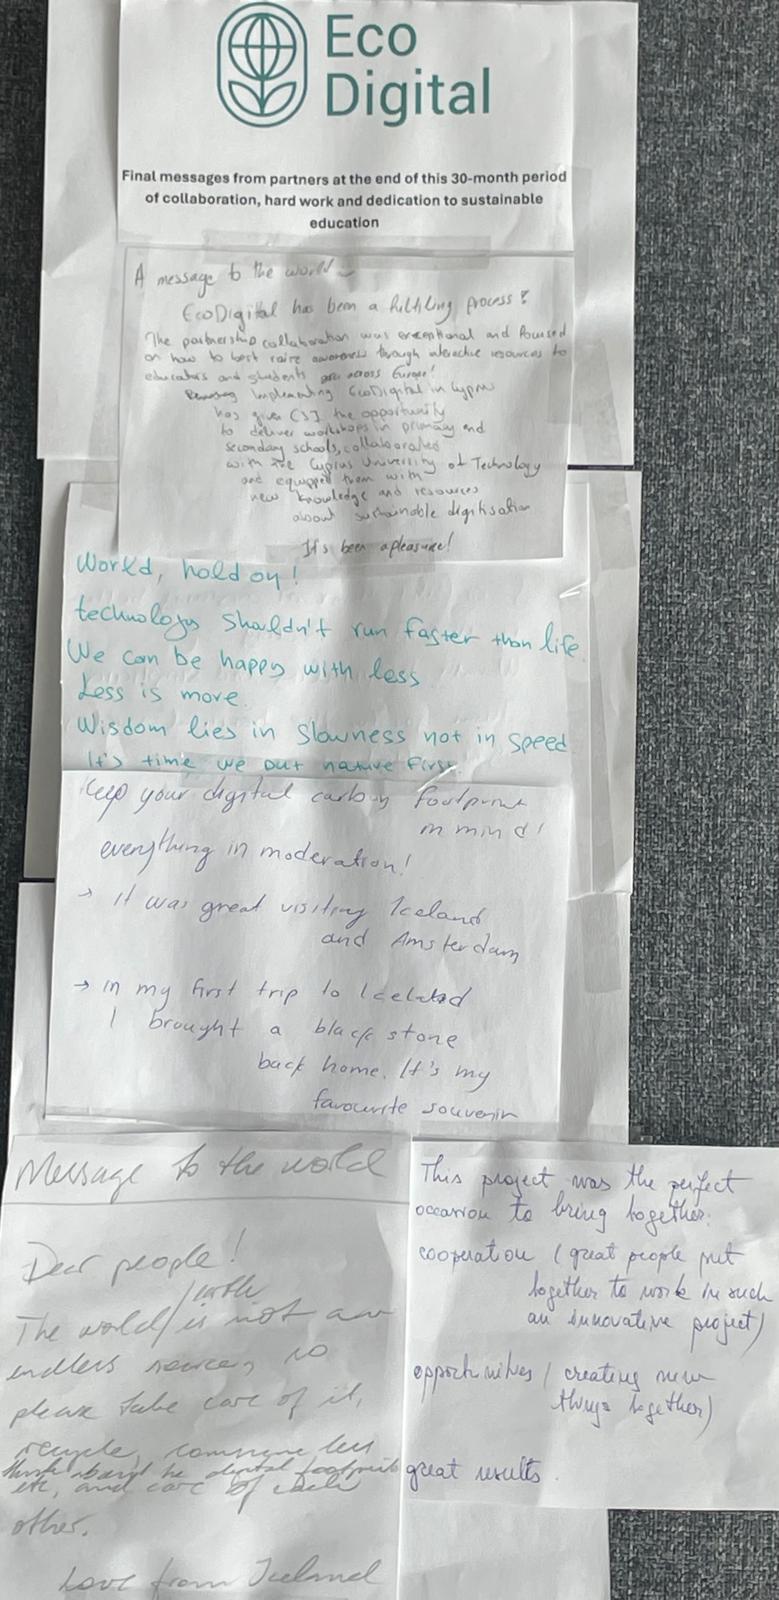 Eco
Digital
Final messages from partners at the end of this 30-month period
of collaboration, hard work and dedication to sustainable
education
A message to the world
EcoDigital has been a fulfiling process!
The partnership collaboration was exceptional and focused
on how to best raise awareness through interactive resources to
educators and students across Europe!
Implementing EcoDigital in Cyprus
has given CSI the opportunity
to deliver workshops in primary and
secondary schools, collaborated
with the Cyprus University of Technology
and equipped them with
new knowledge and resources
about sustainable digitisation
It's been a pleasure!
World, hold on!
technology shouldn't run faster than life.
We can be happy with less
Less is more.
Wisdom lies in slowness not in speed.
It's time we put nature first.
Keep your digital carbon footprint
in mind!
everything in moderation!
→ it was great visiting Iceland
and Amsterdam
→ in my first trip to Iceland
I brought a black stone
back home. It's my
favourite souvenir
Message to the world
Dear people!
The world/earth is not an
endless source, so
please take care of it,
recycle, consume less
think about the digital footprint
etc, and care of each
other.
Love from Iceland
This project was the perfect
occasion to bring together:
cooperation (great people put
together to work in such
an innovative project)
opportunities (creating new
things together)
great results.